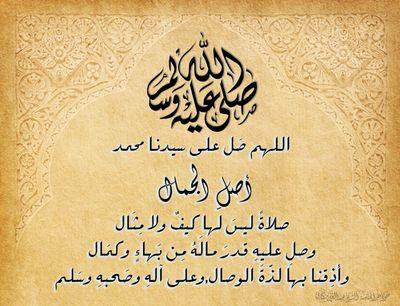 صلى الله عليه وسلم
اللهم صَل على سيدنا محمد
أصلِ الجمال
صلاةً ليسَ لها كيفٌ ولا مثَال
وصلِ عليهِ قدرَ مالَهُ مِن بَهاءٍ وكمَال
وأذقنا بها لذّةَ الوصال,وعلى آلهِ وصَحبهِ وسَلم